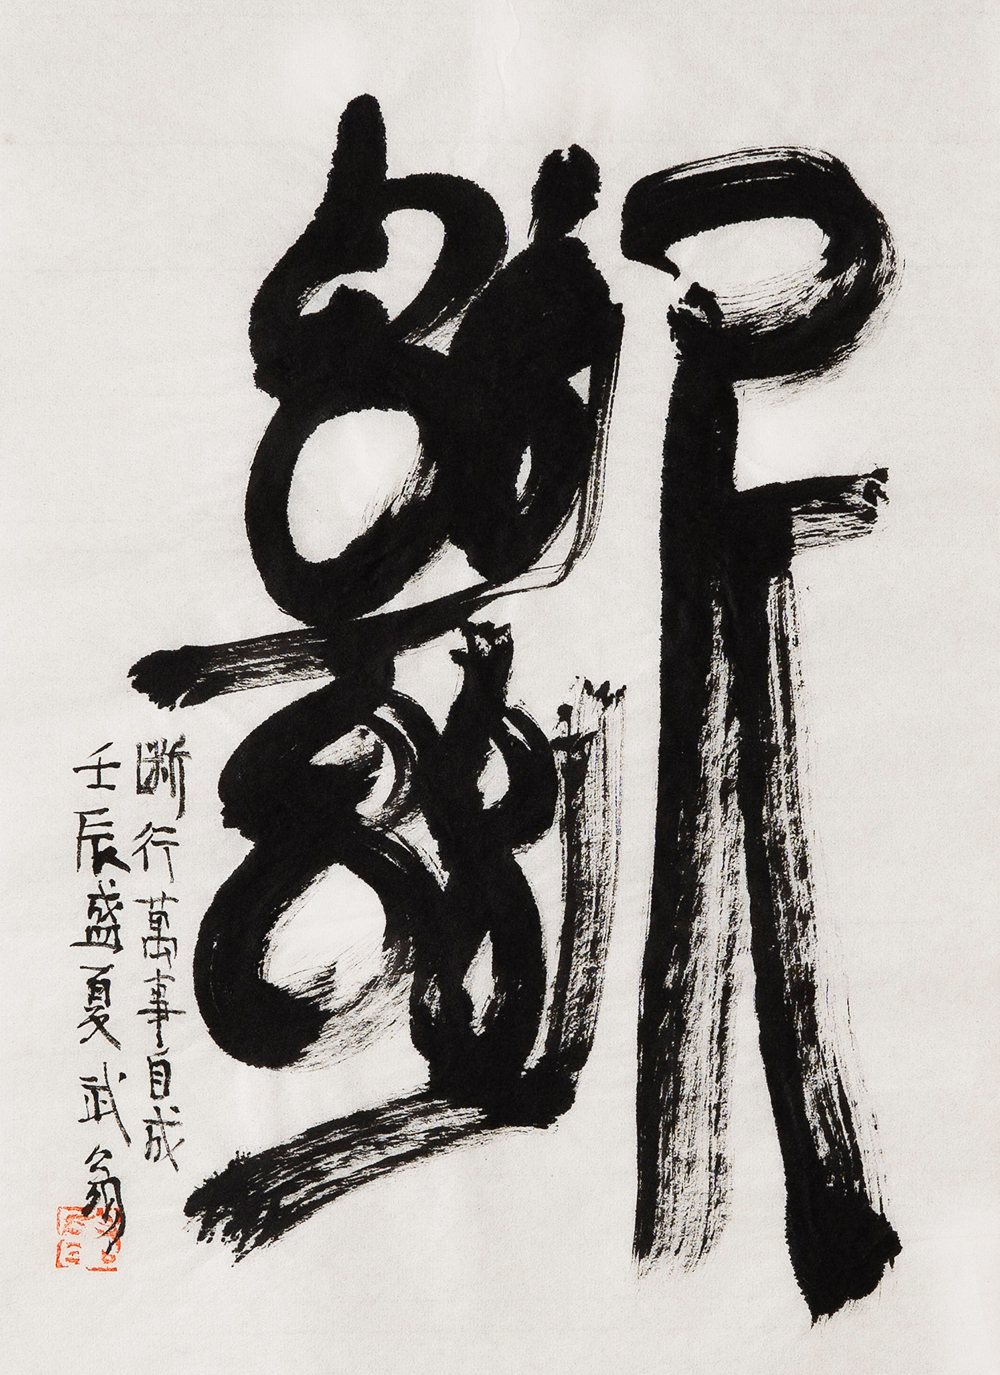 斷
断行萬事自成
壬辰盛夏武翁